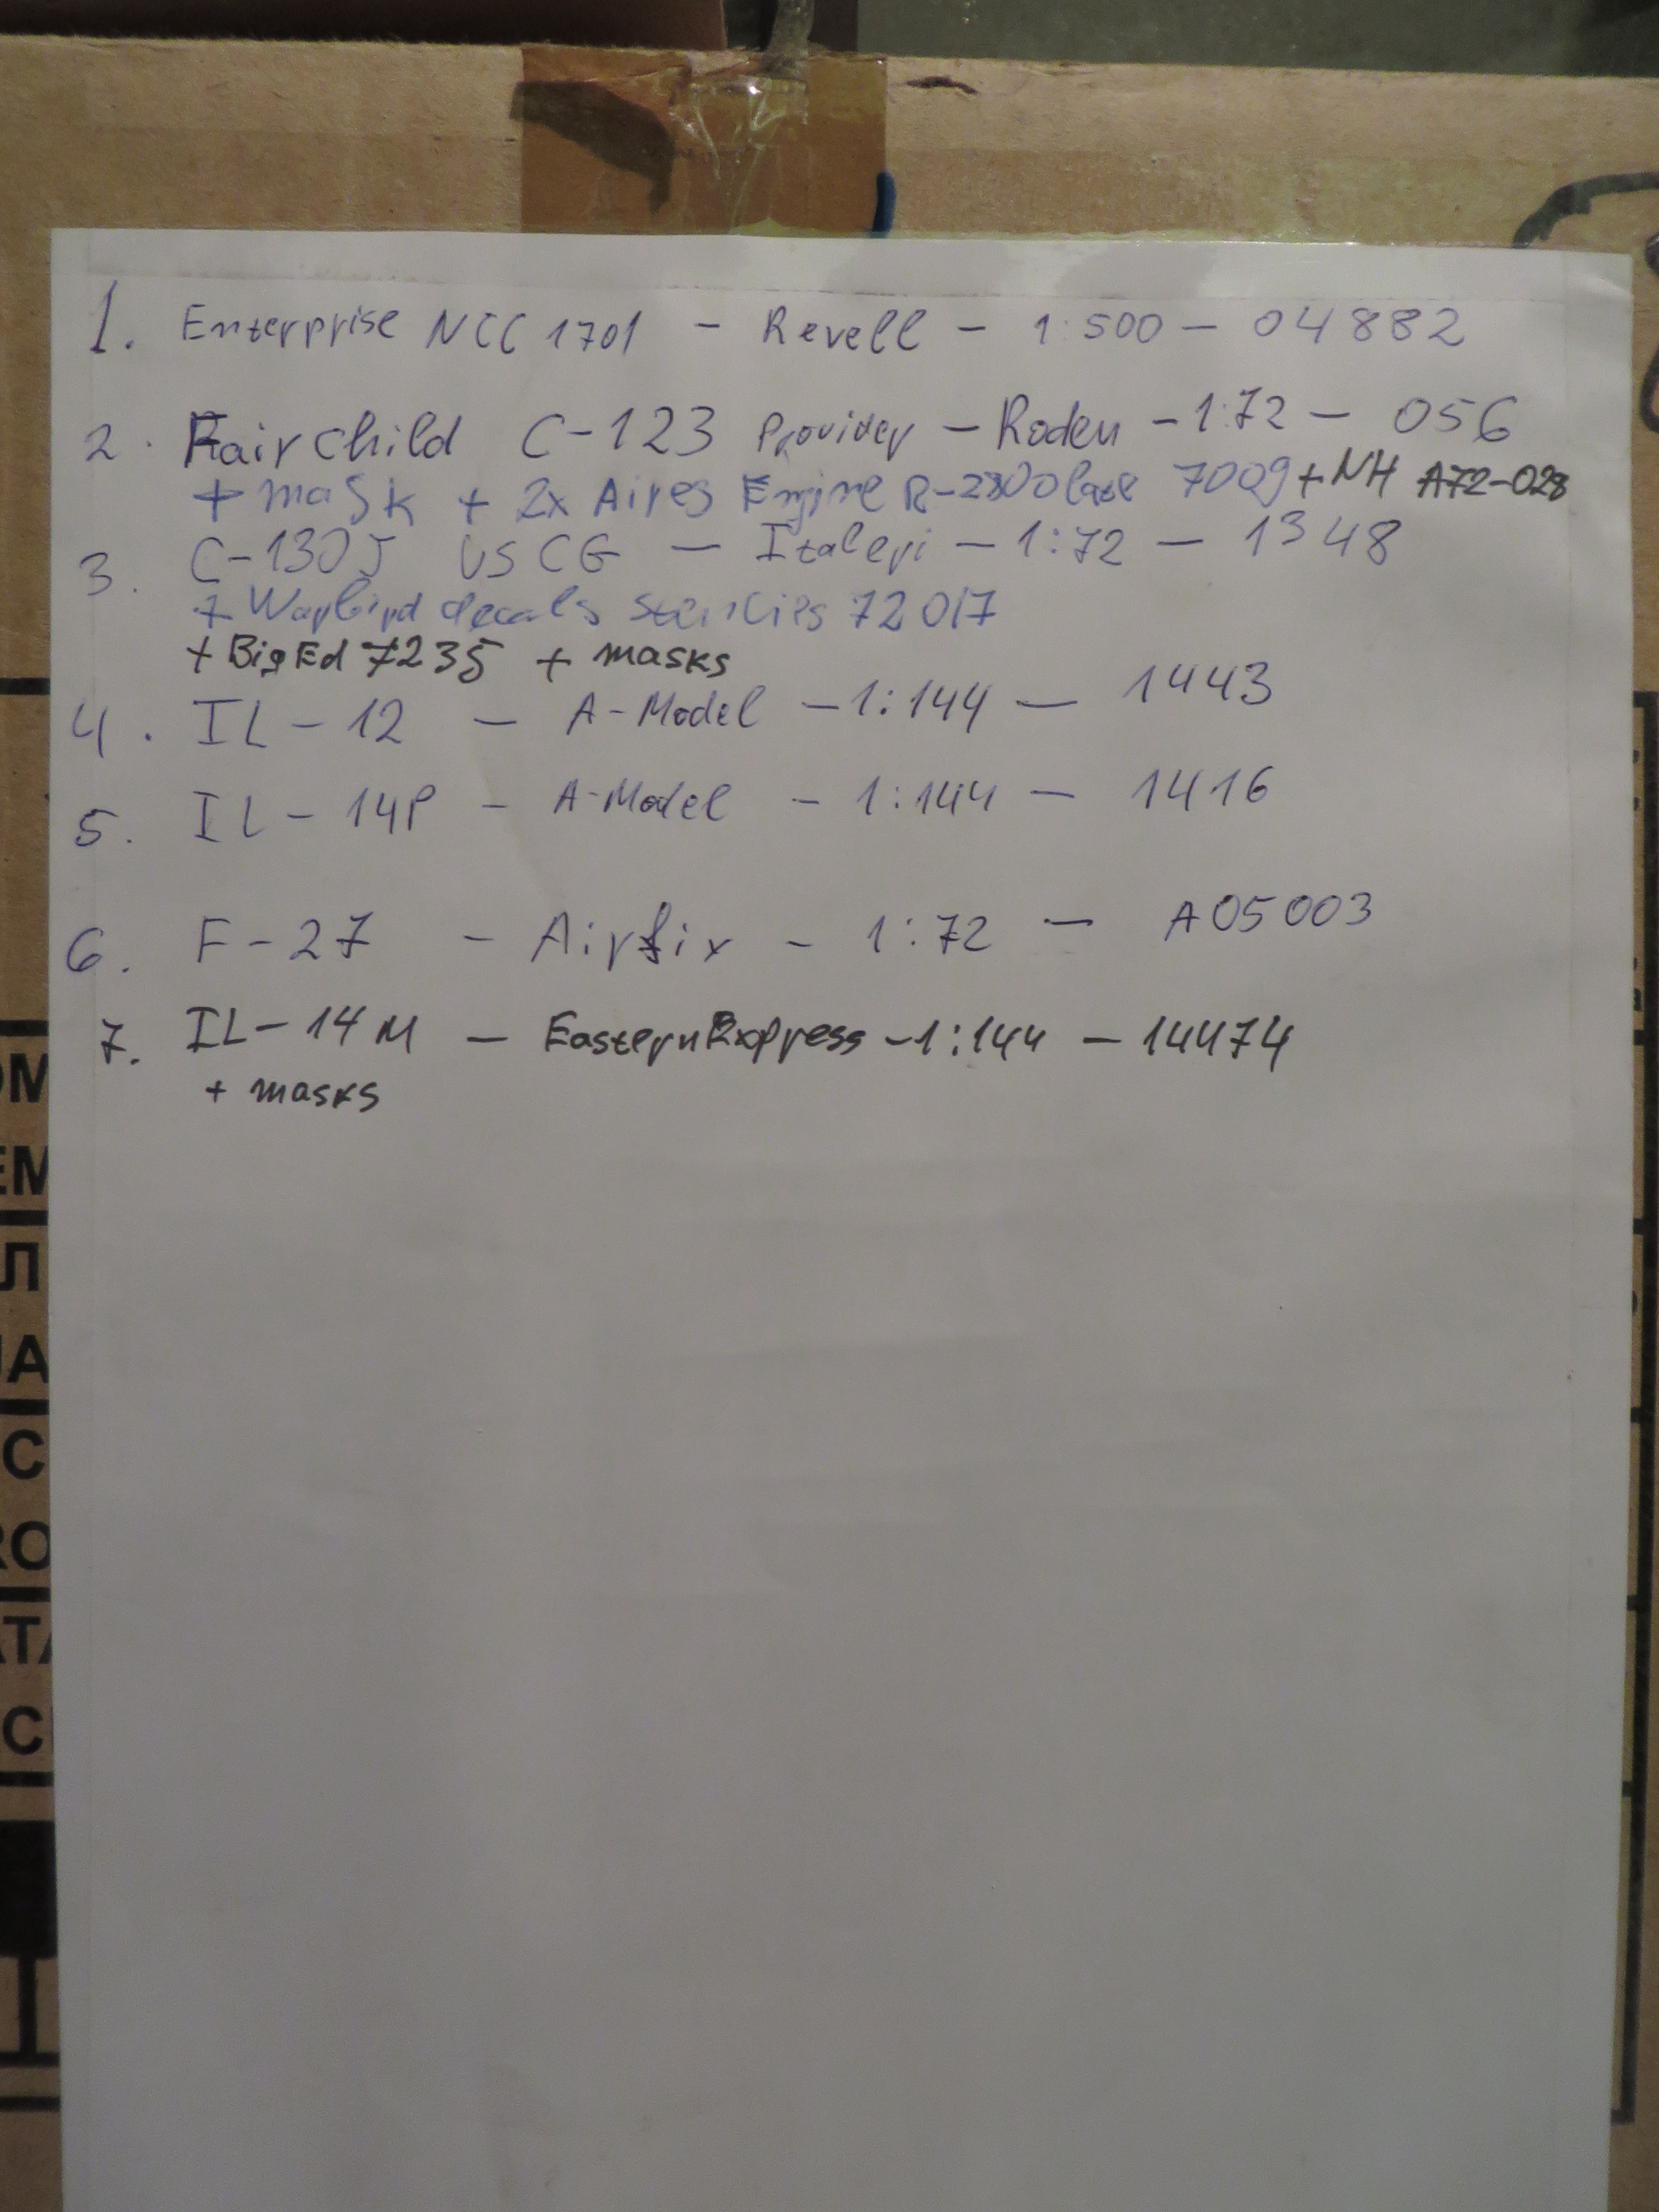 1. Enterprise NCC 1701 - Revell - 1:500 - 04882
2. Fairchild C-123 Provider - Roden - 1:72 - 056
+ mask + 2x Aires Engine R-2800 late 7009 + NH A72-028
3. C-130J USCG - Italeri - 1:72 - 1348
+ Warbird decals stencils 72017
+ BigEd 7235 + masks
4. IL-12 - A-Model - 1:144 - 1443
5. IL-14P - A-Model - 1:144 - 1416
6. F-27 - Airfix - 1:72 - A05003
7. IL-14M - Eastern Express - 1:144 - 14474
+ masks